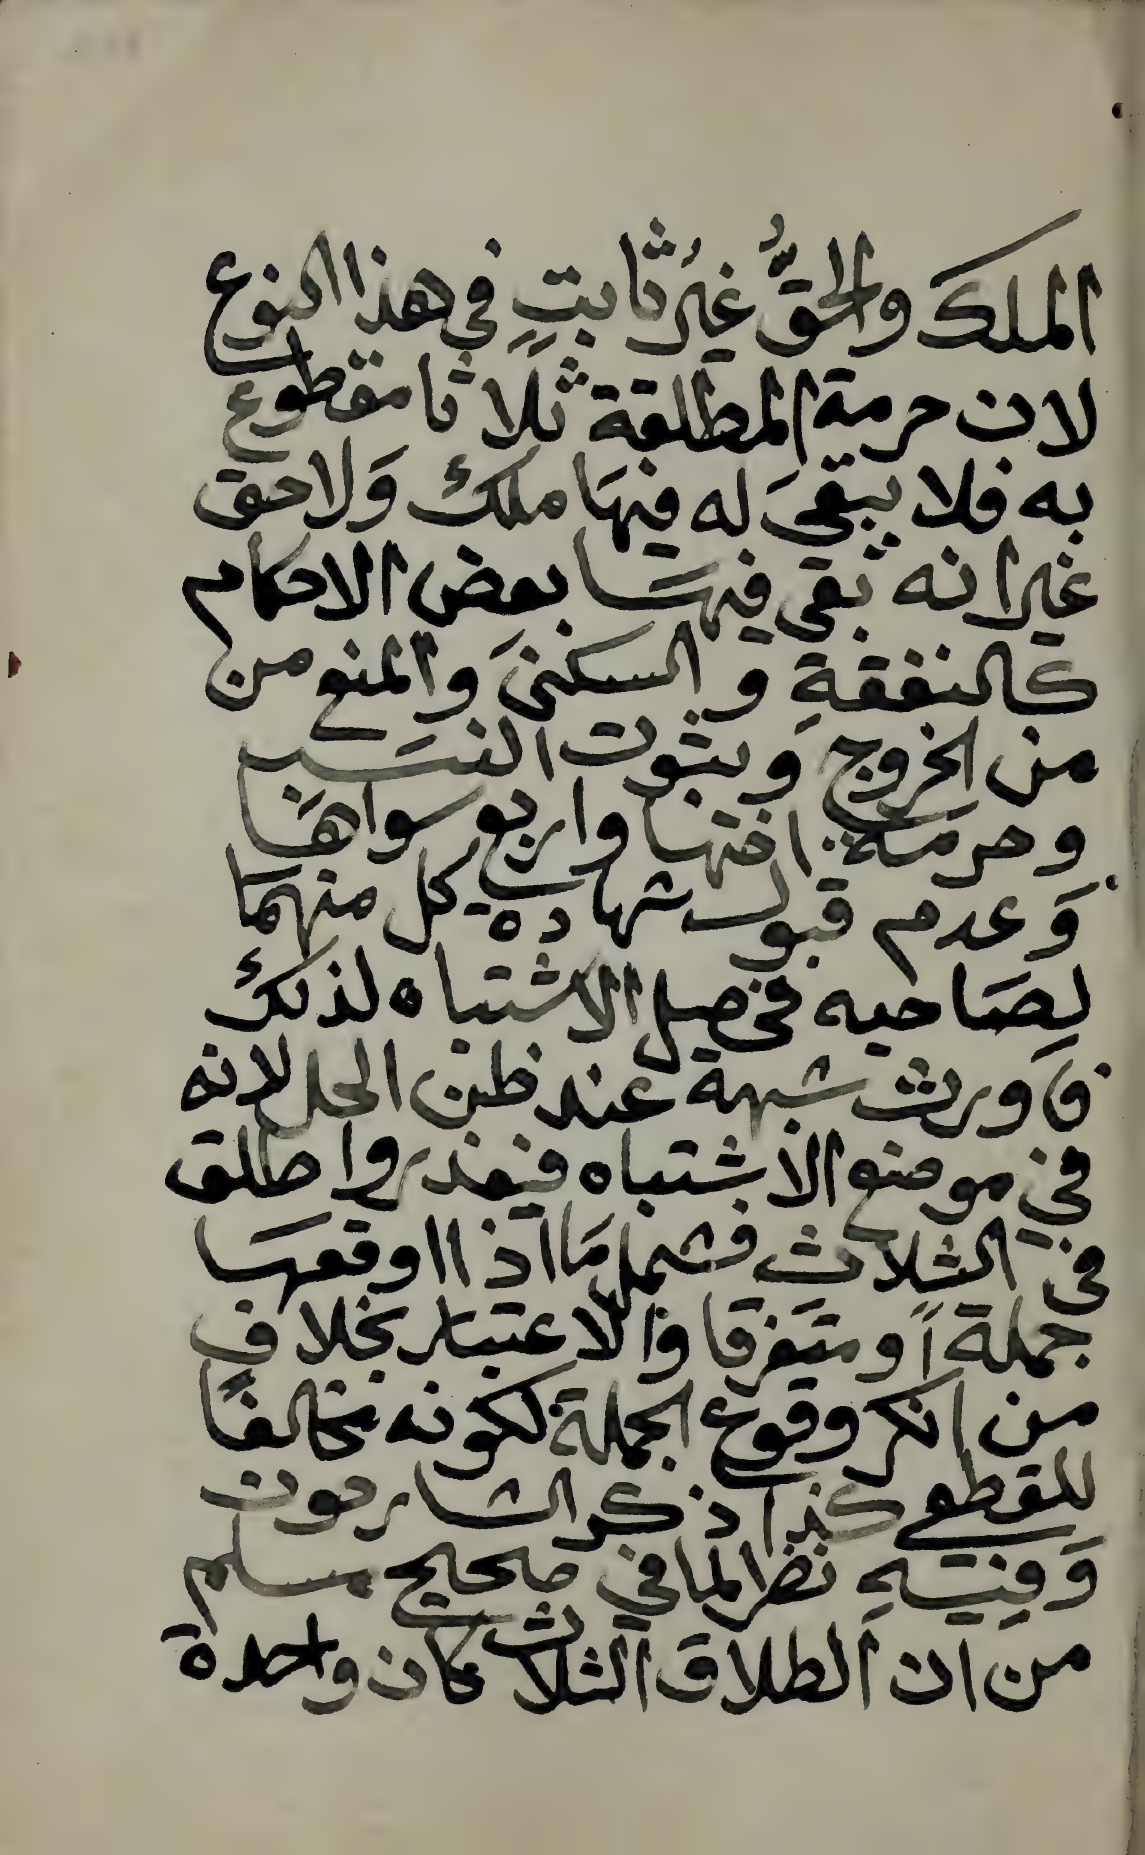 الملكَ والحقُّ غيرُ ثابتٍ في هذا النوع
لان حرمة المطلقة ثلاثا مقطوع
به فلا يبقىَ له فيهَا ملك وَلاحق
غير انه بقى فيهَا بعض الاحكام
كالنفقةِ والسكنىَ والمنع من
من الخروج وبثوت النسَب
وحرمة اختها واربع سواهَا
وَعدم قبول شهادة كل منهما
لِصَاحبه فحصل الاشتباه لذلك
فاورث شبهة عند ظن الحل لانه
في موضع الاشتباه فيعذر واطلق
في الثلاث فشمل مَا اذا اوقعهَا
جملة اَو متَفرقا ولا اعتبار بخلاف
من انكر وقوع الجملة لكونه مخالفًا
للقطعي كذا ذكر الشارحون
وَفيَهِ نظر لما في صحيح مسلم
من ان الطلاق الثلاث كان واحدة